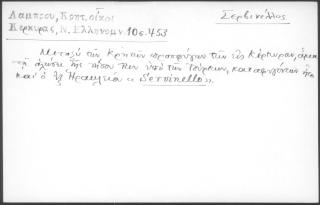 Λαμπρου, Κερκ. οἶκοι
Κερκυρας, Ν. Ελληνομν. 10ος. 453
Σερβινέλλος
Μεταξὺ τῶν Κρητῶν προσφύγων τῶν εἰς Κέρκυραν, ἅμα
τῇ ἁλώσει τῆς νήσου των ὑπὸ τῶν Τούρκων, καταφυγόντων ἦτο
καὶ ὁ ἐξ Ἡρακλείου « Servinello ».